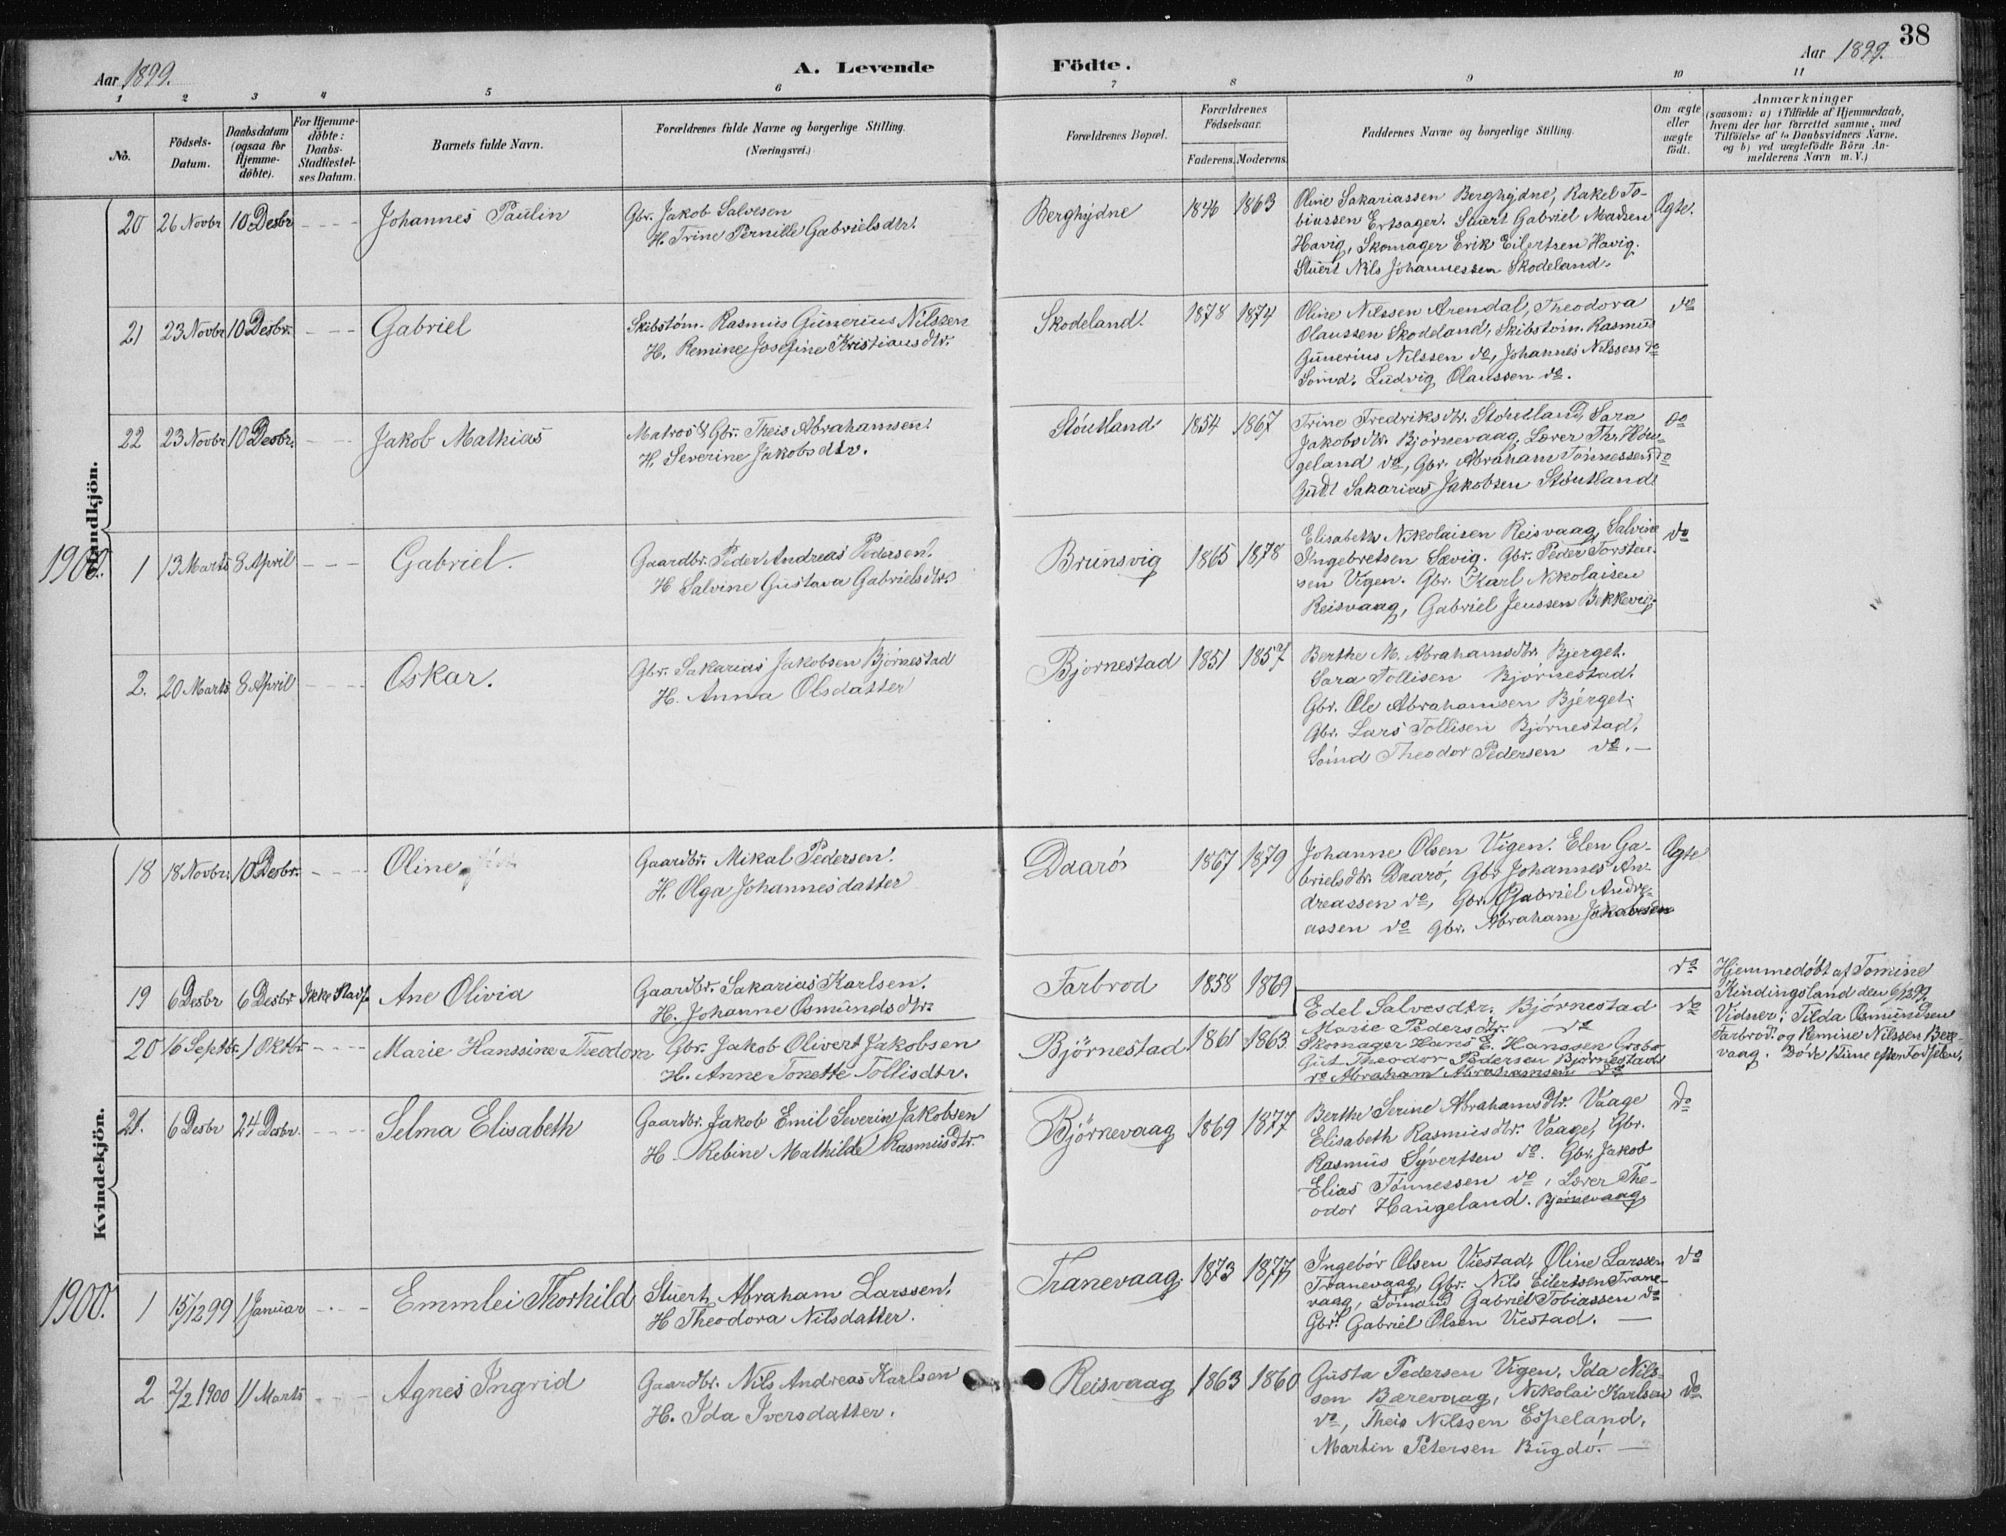 38
Aar 1899.
A. Levende
Födte.
Aar 1899.
1 2 3 4 5 6 7 8 9 10 11
No.
Födsels-
Datum.
Daabsdatum
(ogsaa for
Hjemme-
döbte).
For Hjemme-
döbte:
Daabs-
Stadfæstel-
ses Datum.
Barnets fulde Navn.
Forældrenes fulde Navne og borgerlige Stilling.
(Næringsvei.)
Forældrenes Bopæl.
Forældrenes
Födselsaar.
Faderens. Moderens.
Faddernes Navne og borgerlige Stilling.
Om ægte
eller
uægte
födt.
Anmærkninger
(saasom: a) i Tilfælde af Hjemmedaab,
hvem der har forrettet samme, med
Tilföielse af to Daabsvidners Navne.
og b) ved uægtefödte Börn An-
melderens Navn m. V.)
Mandkjön.
20 26 Novbr 10 Desbr - - - Johannes Paulin
Gbr. Jakob Salvesen
H. Trine Pernille Gabrielsdtr.
Berghydne 1846 1863
Oline Sakariassen Berghydne, Rakel To-
biassen Ertsager. Stuert Gabriel Madsen
Havig, Skomager Erik Eilertsen Havig.
Stuert Nils Johannessen Skodeland.
Ægte.
21 23 Novbr 10 Desbr. - - - Gabriel
Skibstøm. Rasmus Gunerius Nilssen
H. Remine Josefine Kristiansdtr.
Skodeland. 1878 1874
Oline Nilssen Arendal, Theodora
Olaussen Skodeland, Skibstøm. Rasmus
Gunerius Nilssen do, Johannes Nilssen do
Sømd. Ludvig Olaussen do.
do
22 23 Novbr 10 Desbr. - - - Jakob Mathias
Matros & Gbr. Theis Abrahamsen.
H. Severine Jakobsdtr.
Støutland 1854 1867
Trine Fredriksdtr. Støutland, Sara
Jakobsdtr. Bjørnevaag, Lærer Th. Hau-
geland do, Gbr. Abraham Tønnessen do
Sakarias Jakobsen Støutland
do
1900. 1 13 Marts 8 April - - - Gabriel.
Gaardbr. Peder Andreas Pedersen.
H Salvine Gustava Gabrielsdtr.
Brunsvig 1865 1878
Elisabeth Nikolaisen Reisvaag, Salvine
Ingebretsen Sævig. Gbr. Peder Torsten-
sen Vigen. Gbr. Karl Nikolaisen
Reisvaag, Gabriel Jenssen Bekkevig.
do
2. 20 Marts 8 April - - - Oskar.
Gbr. Sakarias Jakobsen Bjørnestad
H. Anna Olsdatter
Bjørnestad 1851 1857
Berthe M. Abrahamsdtr. Bjerget.
Sara Tollisen Bjørnestad.
Gbr. Ole Abrahamsen Bjerget.
Gbr. Lars Tollisen Bjørnestad.
Sømd Theodor Pedersen do. —
Kvindekjön.
18 18 Novbr. 10 Desbr. - - - Oline
Gaardbr. Mikal Pedersen.
H. Olga Johannesdatter
Daarø 1867 1879
Johanne Olsen Vigen. Elen Ga-
brielsdtr. Daarø, Gbr Johannes An-
dreassen do, Gbr. Gabriel Andre-
assen do Gbr. Abraham Jakobsen
Ægte
19 6 Desbr 6 Desbr Ikke Stadf. Ane Olivia
Gaardbr. Sakarias Karlsen.
H. Johanne Osmundsdtr.
Farbrod 1858 1869
do
Hjemmedøbt af Tomine
Kindingsland den 6/12 99
Vidner: Tilda Osmundsen
Farbrod. og Remine Nilssen Bær-
vaag. Døde 1 Time efter Fødselen.
20 16 Septbr. 1 Oktbr - - - Marie Hanssine Theodora
Gbr. Jakob Olivert Jakobsen
H. Anne Tonette Tollisdtr.
Bjørnestad 1861 1863
Edel Salvesdtr. Bjørnestad
Marie Pedersdtr. do
Skomager Hans E. Hanssen Grobo
Gut Theodor Pedersen Bjørnestad
do Abraham Abrahamsen do
do
21. 6 Desbr 24 Desbr. - - - Selma Elisabeth
Gaardbr. Jakob Emil Severin Jakobsen
H. Rebine Mathilde Rasmusdtr.
Bjørnevaag 1869 1877
Berthe Serine Abrahamsdtr. Vaage
Elisabeth Rasmusdtr. Vaage, Gbr.
Rasmus Syvertsen do. Gbr. Jakob
Elias Tønnessen do, Lærer The-
odor Haugeland. Bjørnevaag
do
1900. 1 15/12 99 1 Januar - - - Emmlei Thorhild
Stuert Abraham Larssen.
H Theodora Nilsdatter.
Tranevaag. 1873 1877
Ingebor Olsen Viestad, Oline Larssen
Tranevaag, Gbr. Nils Eilertsen Trane-
vaag, Sømand Gabriel Tobiassen do
Gbr. Gabriel Olsen Viestad. —
do
2 2/2 1900 11 Marts - - - Agnes Ingrid
Gaardbr. Nils Andreas Karlsen
H. Ida Iversdatter.
Reisvaag 1863 1860
Gusta Pedersen Vigen, Ida Nils-
sen Bærevaag, Nikolai Karlsen
do, Theis Nilssen Espeland,
Martin Petersen Bugdø. —
do